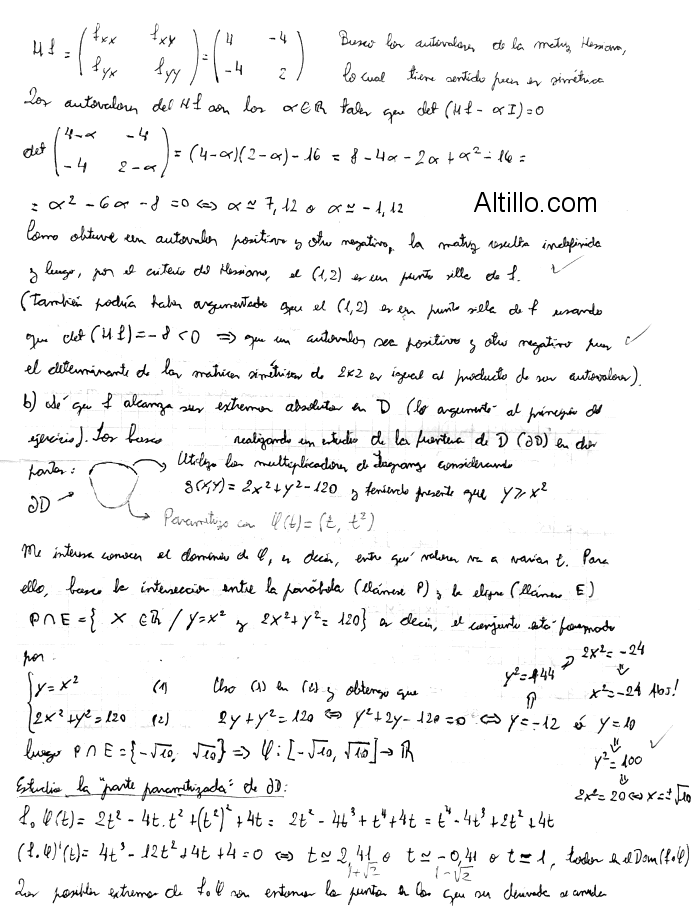 Hf = ( fxx fxy ; fyx fyy ) = ( 4 -4 ; -4 2 ) Busco los autovalores de la matriz Hessiana,
lo cual tiene sentido pues es simétrica
Los autovalores del Hf son los α∈ℝ tales que det (Hf - αI)=0
det ( 4-α -4 ; -4 2-α ) = (4-α)(2-α)-16 = 8-4α-2α+α²-16 =
= α²-6α-8=0 ⇔ α≃7,12 o α≃-1,12
Altillo.com
Como obtuve un autovalor positivo y otro negativo, la matriz resulta indefinida
y luego, por el criterio del Hessiano, el (1,2) es un punto silla de f.
(También podría haber argumentado que el (1,2) es un punto silla de f usando
que det(Hf)=-8<0 ⇒ que un autovalor sea positivo y otro negativo pues
el determinante de las matrices simétricas de 2x2 es igual al producto de sus autovalores).
b) Sé que f alcanza sus extremos absolutos en D (lo argumenté al principio del
ejercicio). Los busco realizando un estudio de la frontera de D (∂D) en dos
partes: Utilizo los multiplicadores de Lagrange considerando
g(x,y)=2x²+y²-120 y teniendo presente que y≥x²
∂D
Parametrizo con φ(t)=(t, t²)
Me interesa conocer el dominio de φ, es decir, entre qué valores va a variar t. Para
ello, busco la intersección entre la parábola (llámese P) y la elipse (llámese E)
P∩E={ X ∈ℝ / y=x² y 2x²+y²=120} es decir, el conjunto está formado
por
2x²=-24
y²=144
x²=-24 Abs!
{ y=x² (1) Uso (1) en (2) y obtengo que
2x²+y²=120 (2) 2y+y²=120 ⇔ y²+2y-120=0 ⇔ y=-12 ó y=10
luego P∩E={-√10, √10} ⇒ φ:[-√10, √10]→ℝ
y²=100
2x²=20⇔x=±√10
Estudio la "parte parametrizada" de ∂D:
f∘φ(t)= 2t²-4t.t²+(t²)²+4t= 2t²-4t³+t⁴+4t=t⁴-4t³+2t²+4t
(f∘φ)'(t)= 4t³-12t²+4t+4=0 ⇔ t≃2,41 o t≃-0,41 o t=1, todos en el Dom(f∘φ)
1+√2 1-√2
Los posibles extremos de f∘φ son entonces los puntos en los que su derivada se anula